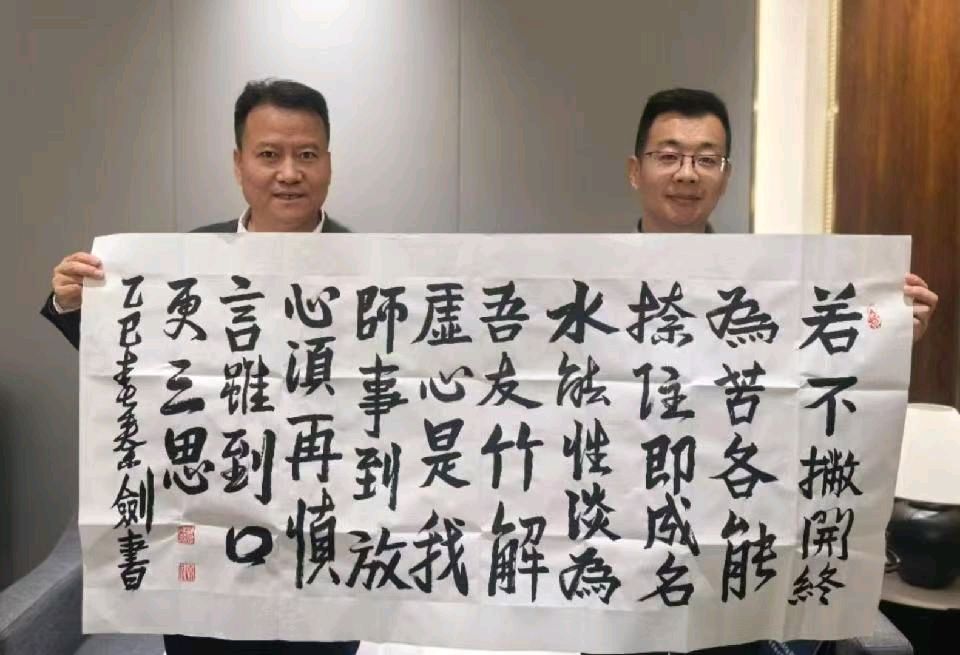 若不撇開終
為苦各能
捺住即成名
水能性淡為
吾友竹解
虛心是我
師事到放
心須再慎
言雖到口
更三思
乙巳春 秦劍書